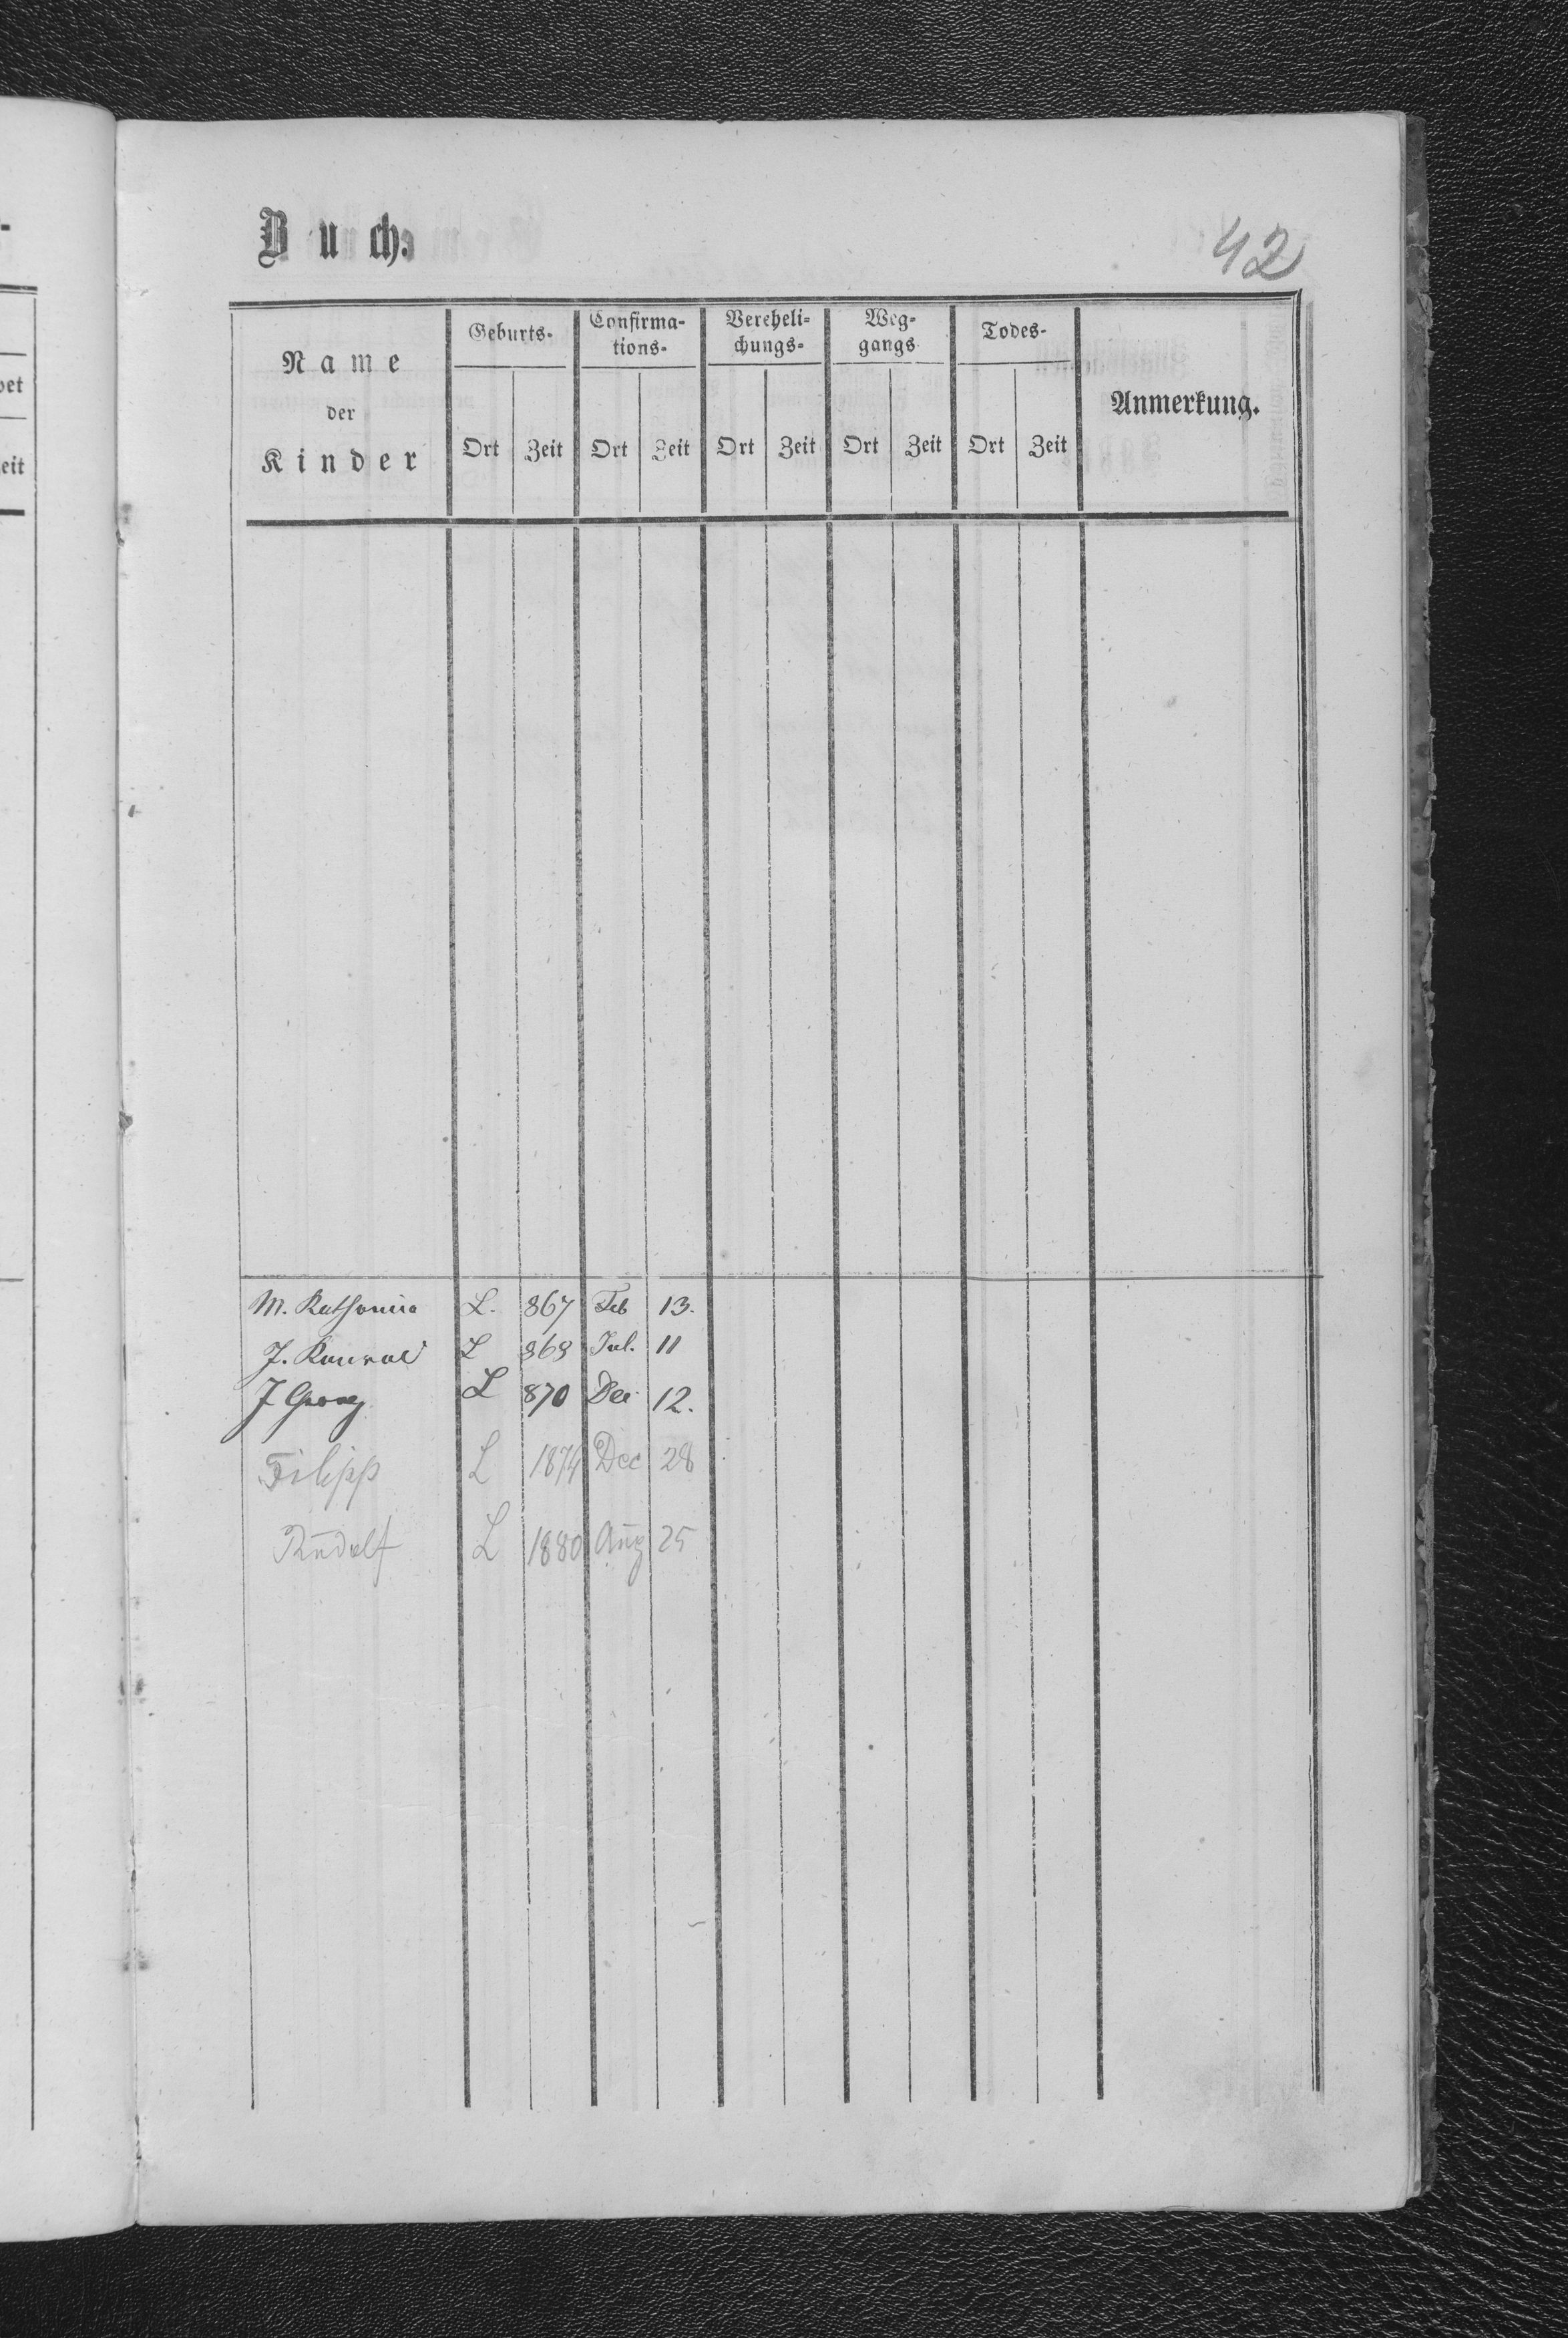 Buch.
42
Name
der
Kinder
Geburts-
Confirma-
tions-
Verheheli-
chungs-
Weg-
gangs
Todes-
Anmerkung.
Ort Zeit Ort Zeit Ort Zeit Ort Zeit Ort Zeit
M. Katharina L. 867 Feb 13.
J. Konrad L 868 Jul. 11
J Georg L 870 Dec 12.
Filipp L 1874 Dec 28
Rudolf L 1880 Aug 25
et
eit